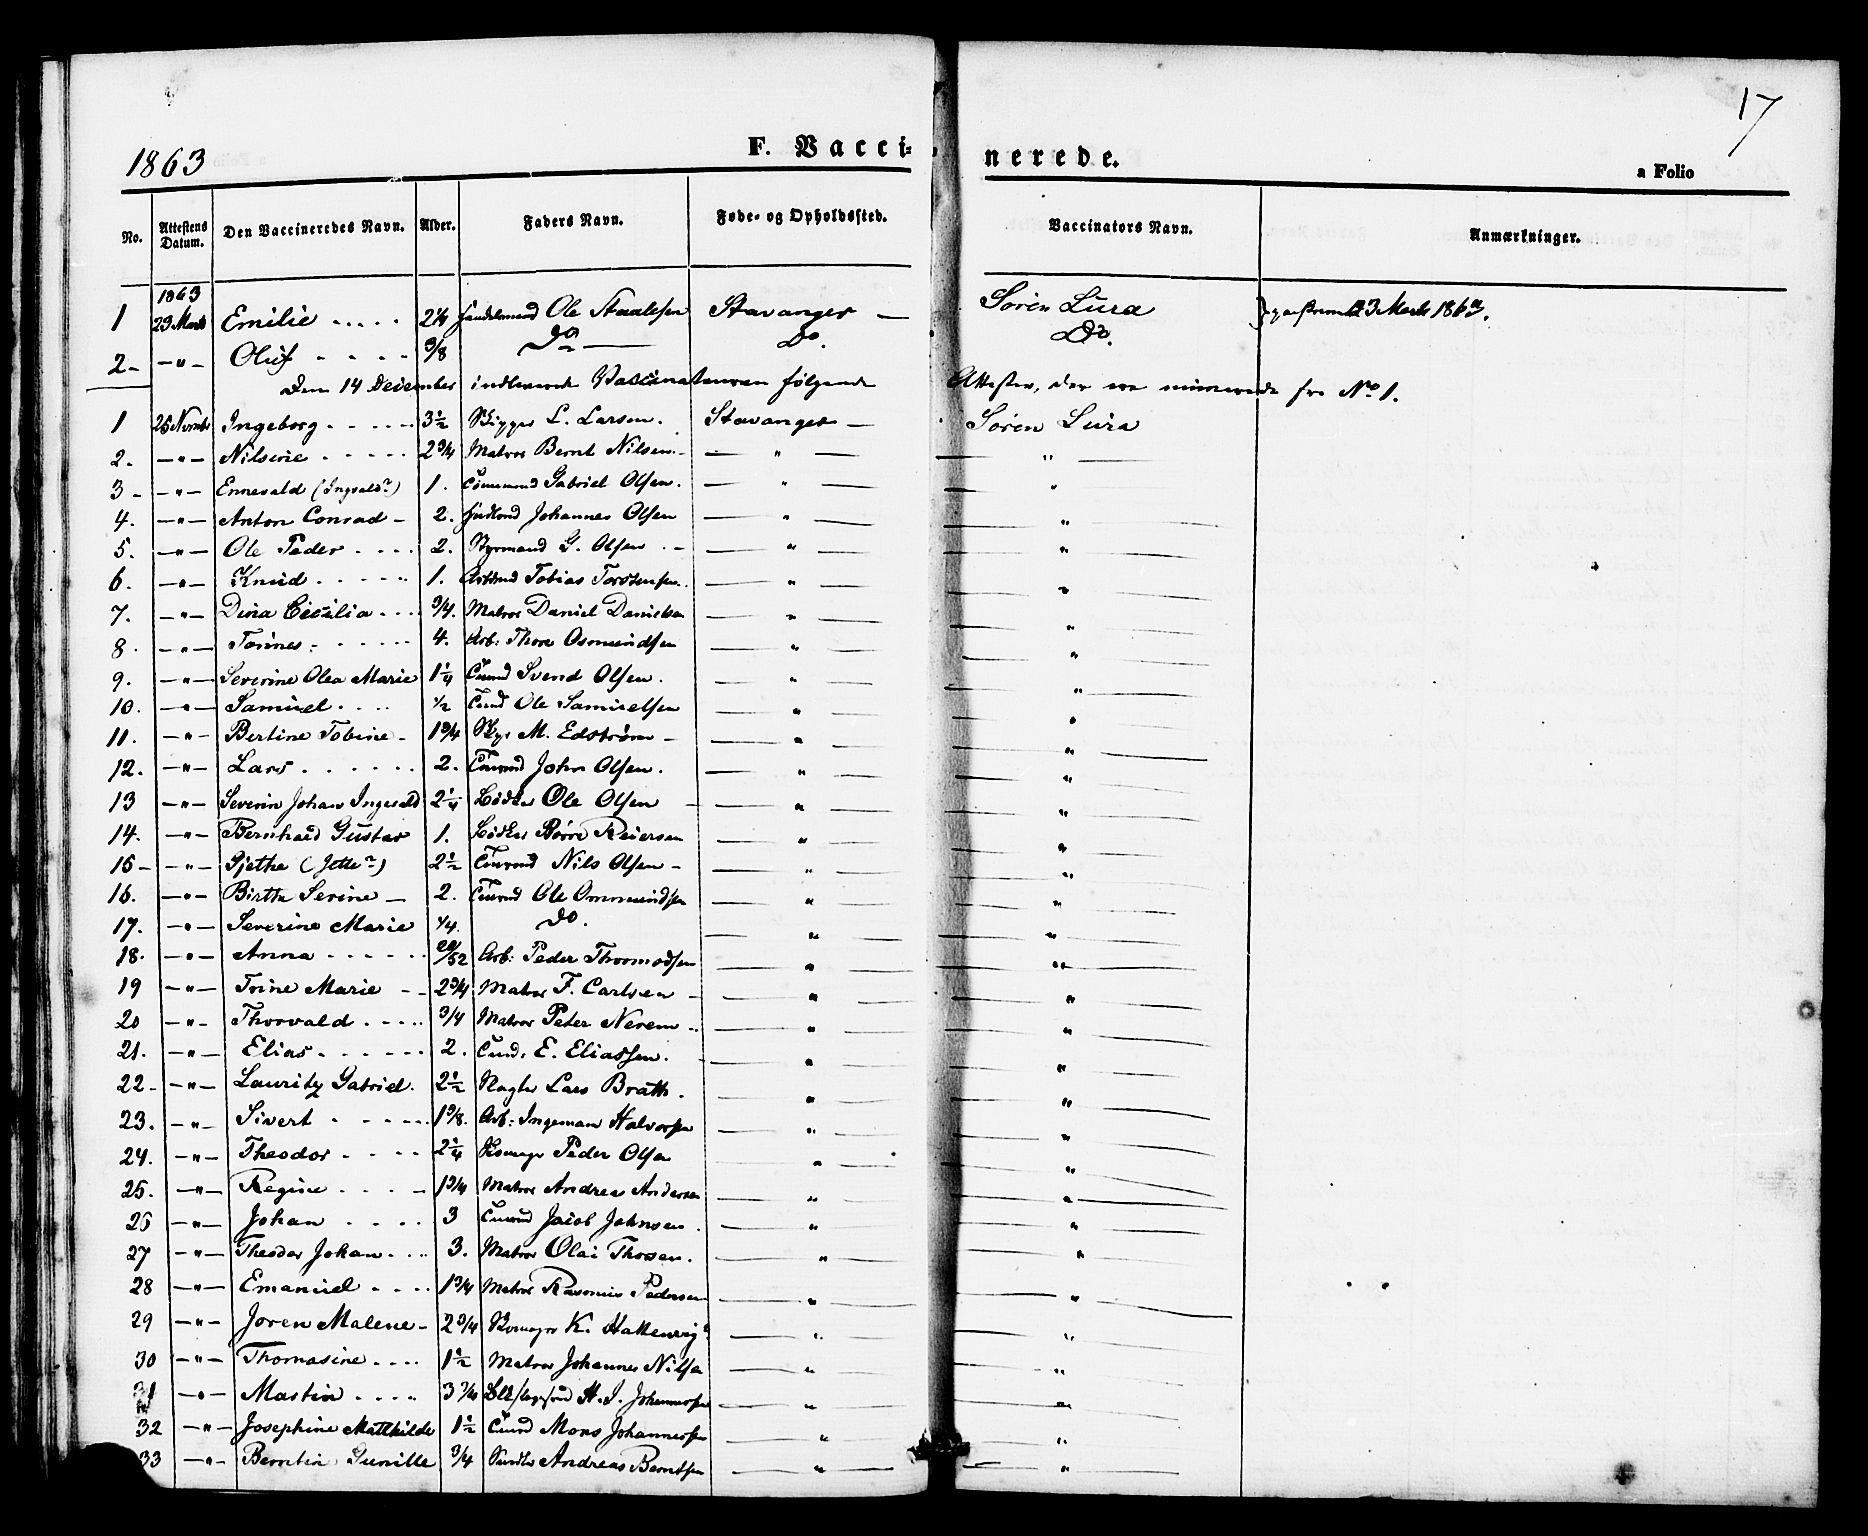 17
1863 F. Vaccinerede. a Folio
No. Attestens Datum. Den Vaccineredes Navn. Alder. Faders Navn. Føde- og Opholdssted. Vaccinators Navn. Anmærkninger.
1863
1 23 Marts Emilie 2¼ Ole Staalesen Stavanger — Søren Lura 23 Marts 1863.
2 – " – Oluf 3/8 Do — Do. Do.
Den 14 December indleverede Vaccinateuren følgende Attester, der ere numerede fra No 1.
1 25 Novmbr Ingeborg 3½ Skipper L. Larsen. Stavanger — Søren Lura
2. – " – Nilserie 2 3/4 Matros Bernt Nilsen. — " — — " —
3 – – " – Ennevald (Ingvald?) 1. Gabriel Olsen. — " — — " —
4. – " – Anton Conrad – 2. Johannes Olsen — " — — " —
5. – " – Ole Peder 2. Styrmand G. Olsen — " — — " —
6. – " – Knud 1. Tobias Torstensen. — " — — " —
7. – " – Dina Cecilia 3/4. Matros Daniel Danielsen — " — — " —
8. – " – Tønnes 4. Arb: Thore Osmundsen — " — — " —
9. – " – Severine Olea Marie 1¼ Svend Olsen. — " — — " —
10. – " – Samuel 1/2 Ole Samuelsen — " — — " —
11. – " – Bertine Tobine – 1 3/4 M. Edstrøm – — " — — " —
12. – " – Lars 2. John Olsen. — " — — " —
13 – " – Severin Johan Ingevald 2¼ Bødker Ole Olsen — " — — " —
14. – " – Bernhard Gustav 1. Bødker Børre Reiersen — " — — " —
15 – – " – Sjethe (Jette?) 2½ Nils Olsen – — " — — " —
16. – " – Birthe Serine — 2. Ole Ommundsen — " — — " —
17. – " – Severine Marie 1/4. Do. — " — — " —
18. – " – Anna /52 Arb: Peder Thormodsen — " — — " —
19 – " – Trine Marie 2 3/4 Matros F. Carlsen – — " — — " —
20 – " – Thorvald 3/4 Matros Peter Nerem — " — — " —
21. – " – Elias 2. E. Eliassen. — " — — " —
22 – – " – Lauritz Gabriel. 2½ Lars Bratth. — " — — " —
23. – " – Sivert 1 3/8. Arb: Ingeman Halvorsen — " — — " —
24. – " – Theodor 2¼ Peder Olsen — " — — " —
25. – " – Regine 1 3/4 Matros Andreas Andersen — " — — " —
26 – " – Johan 3 Jacob Johnsen. — " — — " —
27 – " – Theodor Johan 3. Matros Olai Thorsen. — " — — " —
28 – " – Emanuel 1 3/4 Matros Rasmus Pedersen — " — — " —
29 – " – Joren Malene – 2 3/4 K. — " — — " —
30 – " – Thomasine 1½ Matros Johannes Nilsen — " — — " —
31 – " – Martin 3 3/4 H. J. Johannessen — " — — " —
32 – " – Josephine Mathilde 1½ Mons Johannessen — " — — " —
33 – " – Berntin Gunille 3/4 Andreas Berntsen — " — — " —